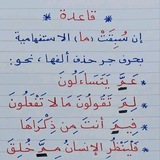 قاعدة
إن سُبِقَتْ (ما) الاستفهامية
بحرف جر حذف ألفها، نحو:
* عَمَّ يَتَسَاءَلُونَ
* لِمَ تَقُولُونَ مَا لَا تَفْعَلُونَ
* فِيمَ أَنتَ مِن ذِكْرَاهَا
* فَلْيَنظُرِ الْإِنسَانُ مِمَّ خُلِقَ